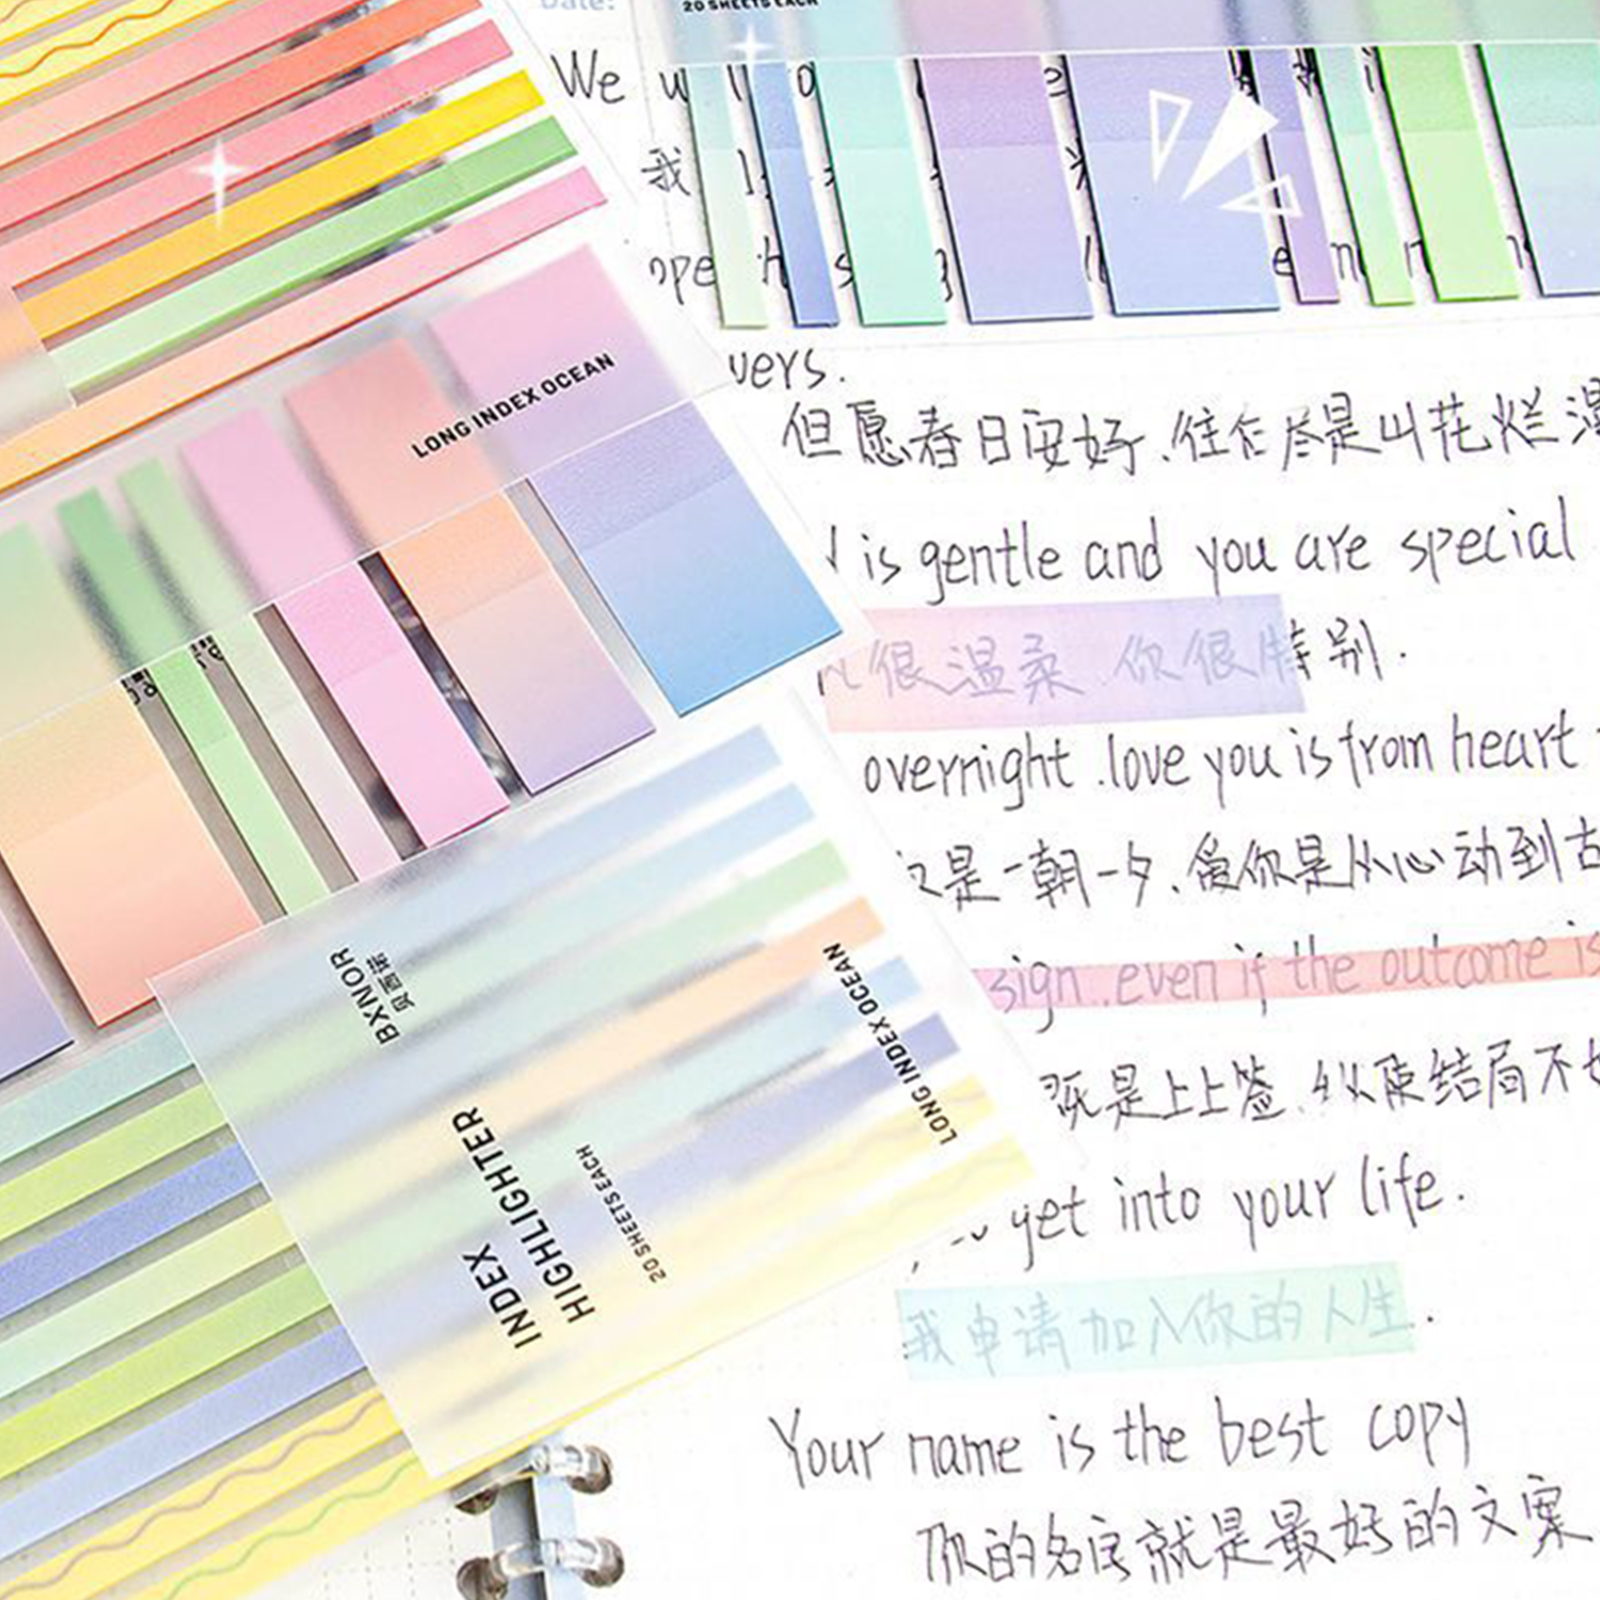 Date:
20 SHEETS EACH
We
我
vers.
但愿春日安好.往后尽是山花烂漫
is gentle and you are special
很温柔 你很特别.
overnight.love you is from heart
是一朝一夕.爱你是从心动到古
sign.even if the outcome is
既是上上签.纵使结局不
yet into your life.
我申请加入你的人生.
Your name is the best copy
你的名字就是最好的文案
LONG INDEX OCEAN
BXNOR
贝西诺
INDEX
HIGHLIGHTER
20 SHEETS EACH
LONG INDEX OCEAN